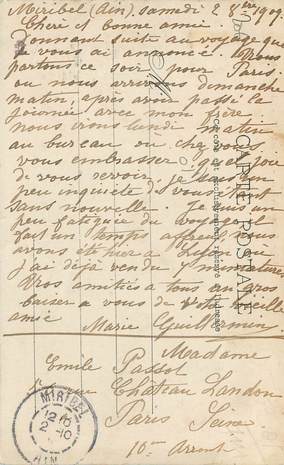 Miribel (Ain), samedi 2 8bre 1909.
Cheri et bonne amie
Donnant suite au voyage que
je vous ai annoncé. Nous
partons ce soir pour Paris.
ou nous arrivons dimanche
matin, après avoir passé la
journée avec mon frère
nous irons lundi matin
au bureau ou chez vous
vous embrasser quel joie
de vous revoir, je suis un
peu inquiète
sans nouvelle Je suis un
peu fatiguée du voyage il
fait un temps affreux nous
avons été hier a
j'ai déjà vendu 4 miniatures
Gros amitiés a tous un gros
baiser a vous de votre vieille
amie
Marie Guillemin
CARTE POSTALE
Madame
Emile Passot
Château Landon
Paris Seine
10me Arrond
MIRIBEL
12 10
2 -10
AIN